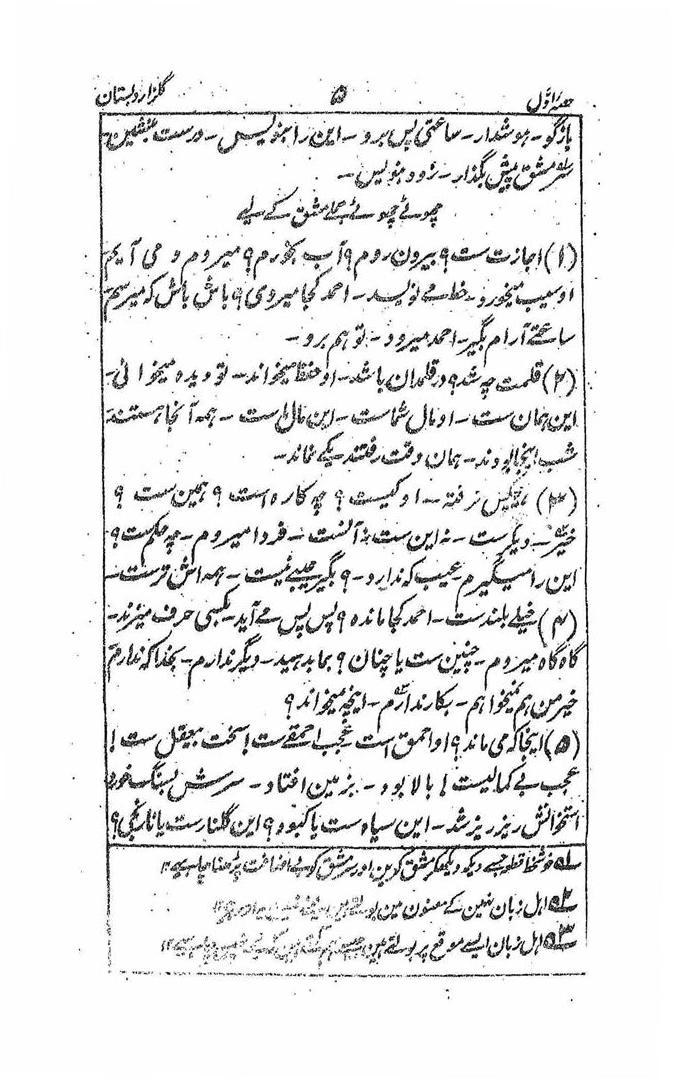 حصہ اوّل ۵ گلزار دبستان
بازگو ۔ ہوشدار ۔ ساعتی پس برو ۔ این را بنویس ۔ درست بنشین
سر مشق پیش بگذار ۔ زود بنویس ۔
چھوٹے چھوٹے جملے مشق کے لیے
(۱) اجازت ست ؟ بیرون روم ؟ آب بخورم ؟ میروم و می آیم
او سیب میخورد ۔ خط مے نویسد ۔ احمد کجا میروی ؟ باش باش کہ میرسم
ساعتے آرام بگیر ۔ احمد میرود ۔ تو ہم برو ۔
(۲) قلمت چہ شد ؟ در قلمدان باشد ۔ او حفظ میخواند ۔ تو دیدہ میخوانی ۔
این ہمان ست ۔ او مال شماست ۔ این مال است ۔ ہمہ آنجا ہستند
شب اینجا بودند ۔ ہمان وقت رفتند یکے نماند ۔
(۳) ہیچکس نرفتہ ۔ او کیست ؟ چہ کارہ است ؟ ہمین ست ؟
خیر ۲؎ ۔ دیگرست ۔ نہ این ست نہ آنست ۔ فردا میروم ۔ چہ حکم ست ؟
این را میگیرم عیب کہ ندارد ۔ ؟ بگیر عیبے نیست ۔ ہمہ اش ترست ۔
(۴) خیلے بلندست ۔ احمد کجا ماندہ ؟ پس پس مے آید ۔ بکسی حرف میزند ۔
گاہ گاہ میروم ۔ چنین ست یا چنان ؟ بما بدہید ۔ دیگر ندارم ۔ بخدا کہ ندارم
خیر من ہم نمیخواہم ۔ بکار ندارم ۳؎ ۔ اینچہ میخواند ؟
(۵) اینجا کہ می ماند ؟ او احمق است عجب احمقے ست ! سخت بیعقل ست !
عجب بے کمالیست ! بالا بود ۔ بزمین افتاد ۔ سرش بسنگ خورد
استخوانش ریز ریز شد ۔ این سیاہ ست یا کبود ؟ این گلنارست یا نارنجی ؟
۱؎ خوشخط قطعہ جسے دیکھ دیکھکر مشق کرین اور سر مشق کو بے اضافت پڑھنا چاہیے ۱۲
۲؎ اہل زبان نہین کے معنون مین بولتے ہین
۳؎ اہل زبان ایسے موقع پر بولتے ہین جیسے ہم کہتے ہین